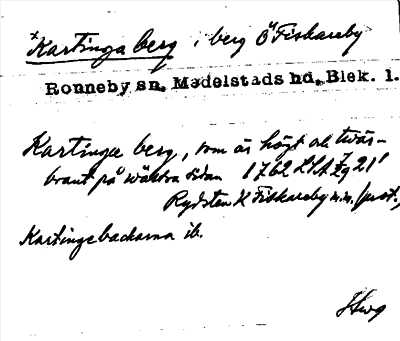 *Kartinga berg, berg Ö Fiskareby
Ronneby sn, Medelstads hd, Blek. l.
Kartingee berg, som är högt och tvär-
brant på wästra sidan 1762 LSA Zg 21¹
Rydsten K Fiskareby m.m. (prot.)
Kartingebackarna ib.